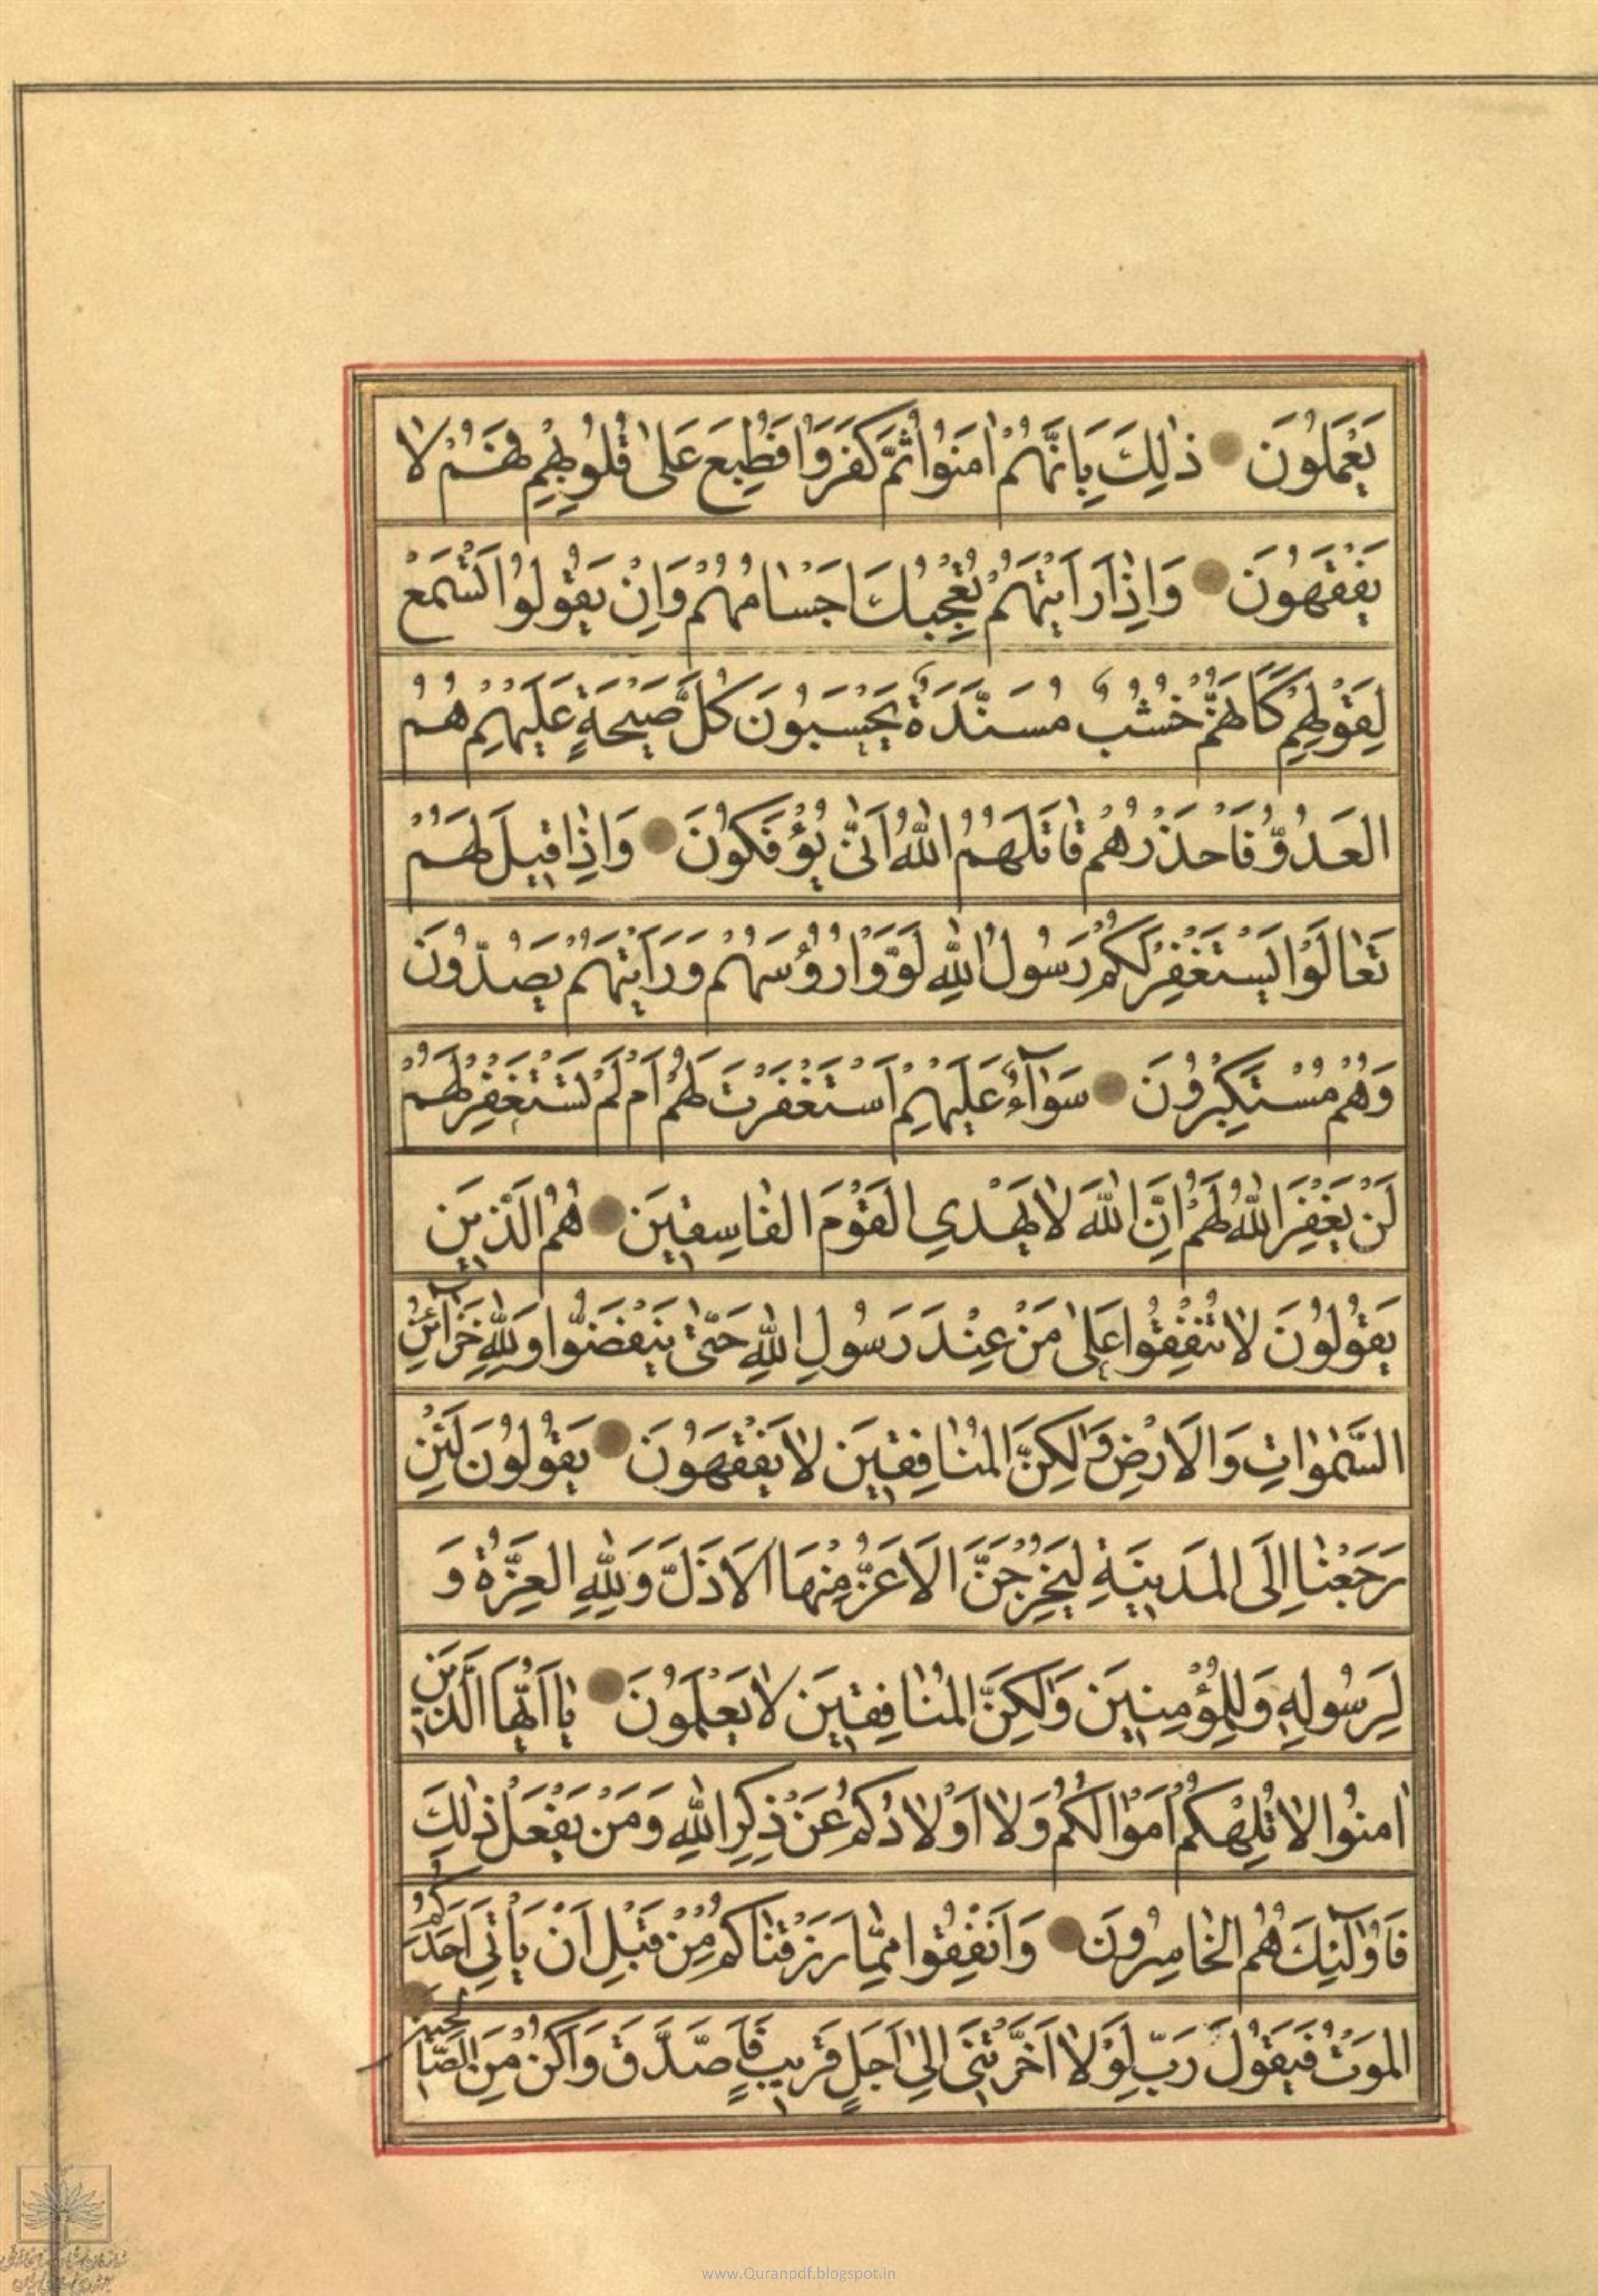 يَعْمَلُونَ ذٰلِكَ بِاَنَّهُمْ اٰمَنُوا ثُمَّ كَفَرُوا فَطُبِعَ عَلىٰ قُلُوبِهِمْ فَهُمْ لا
يَفْقَهُونَ وَاِذٰا رَاَيْتَهُمْ تُعْجِبُكَ اَجْسٰامُهُمْ وَاِنْ يَقُولُوا تَسْمَعْ
لِقَوْلِهِمْ كَاَنَّهُمْ خُشُبٌ مُسَنَّدَةٌ يَحْسَبُونَ كُلَّ صَيْحَةٍ عَلَيْهِمْ هُمُ
الْعَدُوُّ فَاحْذَرْهُمْ قٰاتَلَهُمُ اللّٰهُ اَنّٰى يُؤْفَكُونَ وَاِذٰا قِيلَ لَهُمْ
تَعٰالَوْا يَسْتَغْفِرْ لَكُمْ رَسُولُ اللّٰهِ لَوَّوْا رُؤُسَهُمْ وَرَاَيْتَهُمْ يَصُدُّونَ
وَهُمْ مُسْتَكْبِرُونَ سَوٰاۤءٌ عَلَيْهِمْ اَسْتَغْفَرْتَ لَهُمْ اَمْ لَمْ تَسْتَغْفِرْ لَهُمْ
لَنْ يَغْفِرَ اللّٰهُ لَهُمْ اِنَّ اللّٰهَ لٰا يَهْدِي الْقَوْمَ الْفٰاسِقِينَ هُمُ الَّذِينَ
يَقُولُونَ لٰا تُنْفِقُوا عَلىٰ مَنْ عِنْدَ رَسُولِ اللّٰهِ حَتّٰى يَنْفَضُّوا وَلِلّٰهِ خَزٰاۤئِنُ
السَّمٰوٰاتِ وَالْاَرْضِ وَلٰكِنَّ الْمُنٰافِقِينَ لٰا يَفْقَهُونَ يَقُولُونَ لَئِنْ
رَجَعْنٰا اِلَى الْمَدِينَةِ لَيُخْرِجَنَّ الْاَعَزُّ مِنْهَا الْاَذَلَّ وَلِلّٰهِ الْعِزَّةُ وَ
لِرَسُولِهِ وَلِلْمُؤْمِنِينَ وَلٰكِنَّ الْمُنٰافِقِينَ لٰا يَعْلَمُونَ يٰا اَيُّهَا الَّذِينَ
اٰمَنُوا لٰا تُلْهِكُمْ اَمْوٰالُكُمْ وَلٰا اَوْلٰادُكُمْ عَنْ ذِكْرِ اللّٰهِ وَمَنْ يَفْعَلْ ذٰلِكَ
فَاُولٰۤئِكَ هُمُ الْخٰاسِرُونَ وَاَنْفِقُوا مِمّٰا رَزَقْنٰاكُمْ مِنْ قَبْلِ اَنْ يَأْتِيَ اَحَدَكُمُ
الْمَوْتُ فَيَقُولَ رَبِّ لَوْلٰا اَخَّرْتَنِي اِلىٰ اَجَلٍ قَرِيبٍ فَاَصَّدَّقَ وَاَكُنْ مِنَ الصّٰالِحِينَ
www.Quranpdf.blogspot.in